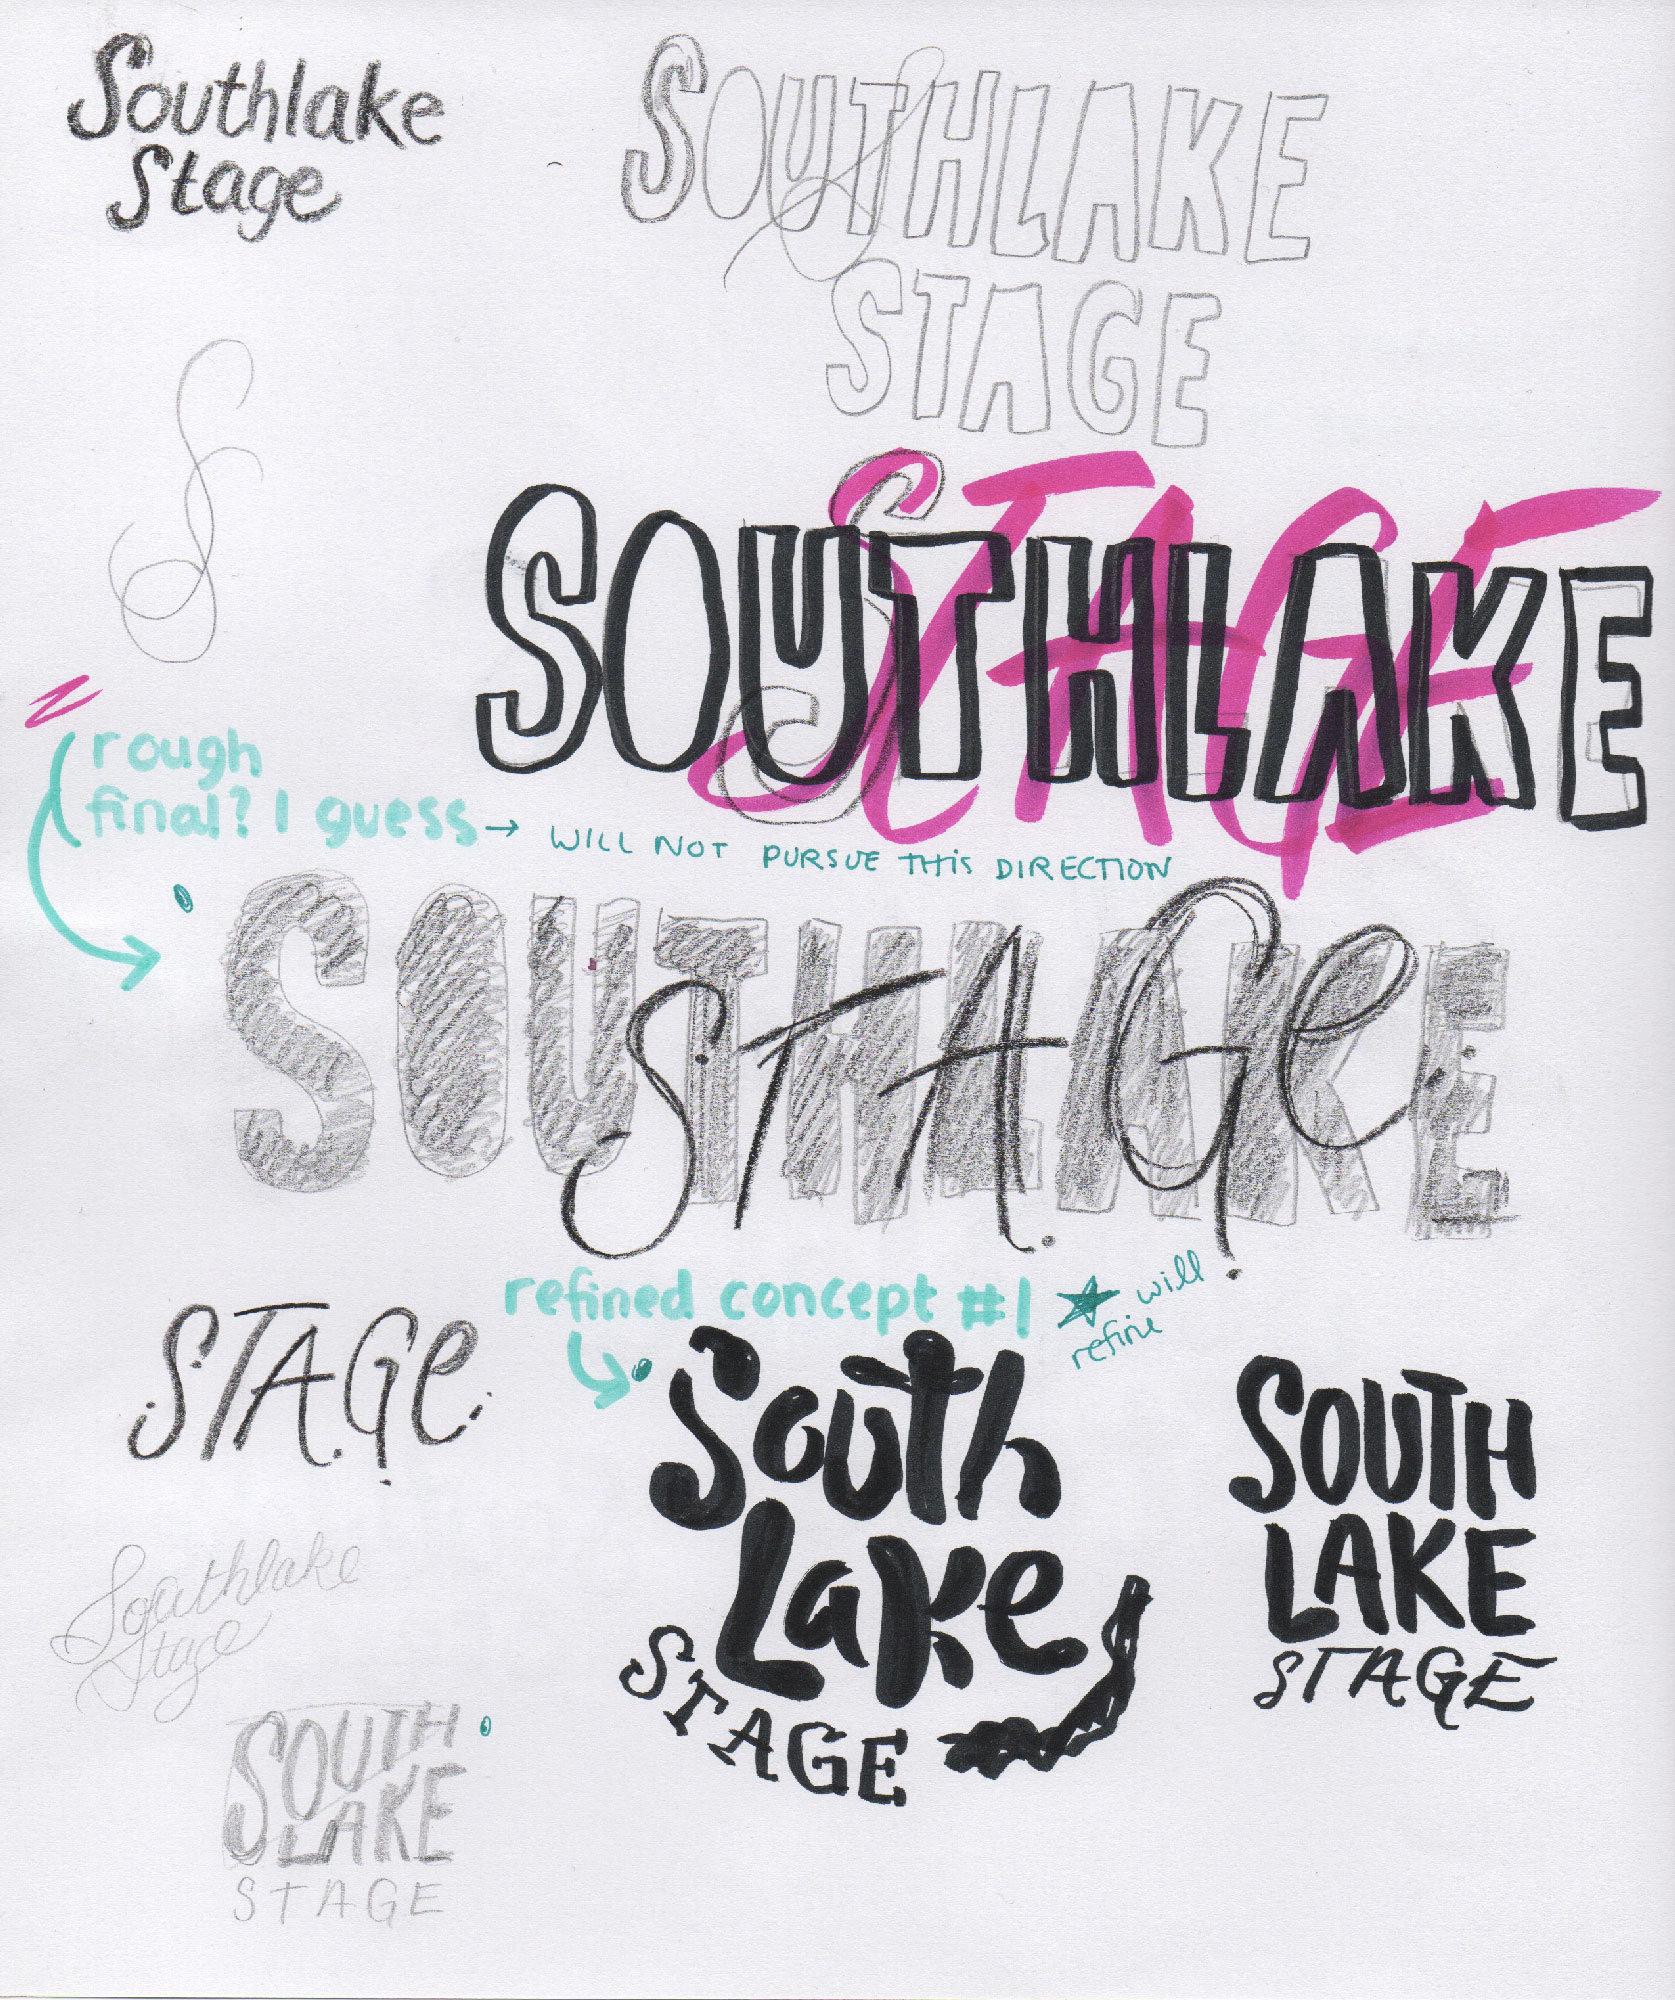 Southlake
Stage
SOUTHLAKE
STAGE
STAGE
SOUTHLAKE
rough
final? I guess → WILL NOT PURSUE THIS DIRECTION
SOUTHLAKE
STAGe
refined concept #1 ★ will
refine
STAGe
South
Lake
STAGE
SOUTH
LAKE
STAGE
Southlake
Stage
SOUTH
LAKE
STAGE